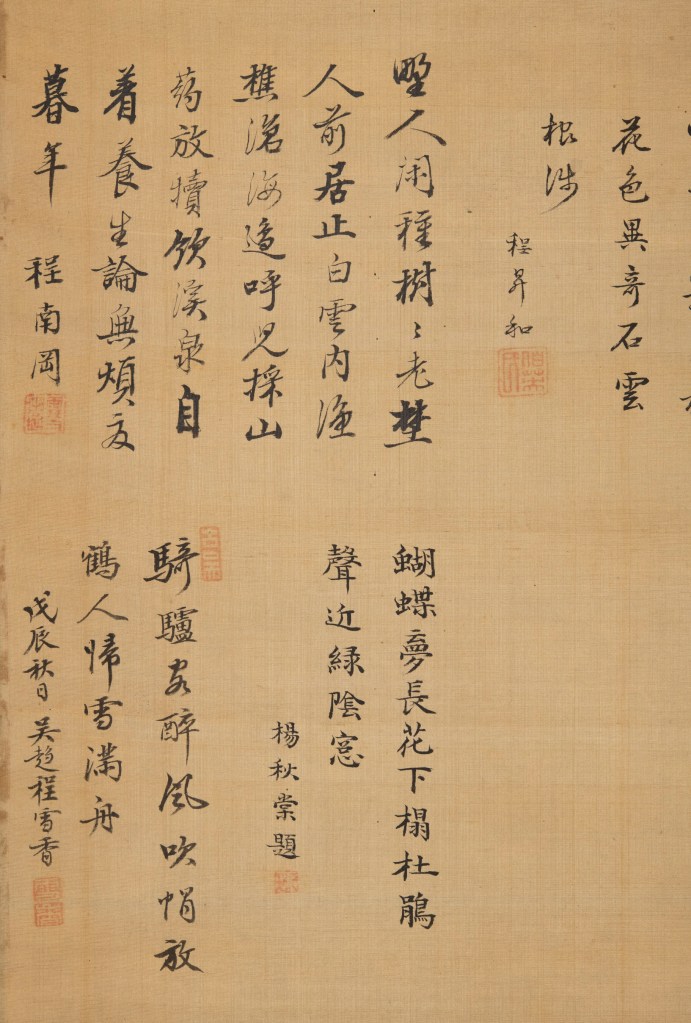 花色異奇石雲
根
程昇和
野人閑種樹〻老埜
人前居止白雲内漁
樵滄海邉呼児採山
葯放犢飲溪泉自
着養生論無煩憂
暮年 程南岡
蝴蝶夢長花下榻杜鵑
聲近緑陰窓
楊秋棠題
騎驢客醉風吹帽放
鶴人帰雪滿舟
戊辰秋日吴趨程雪香